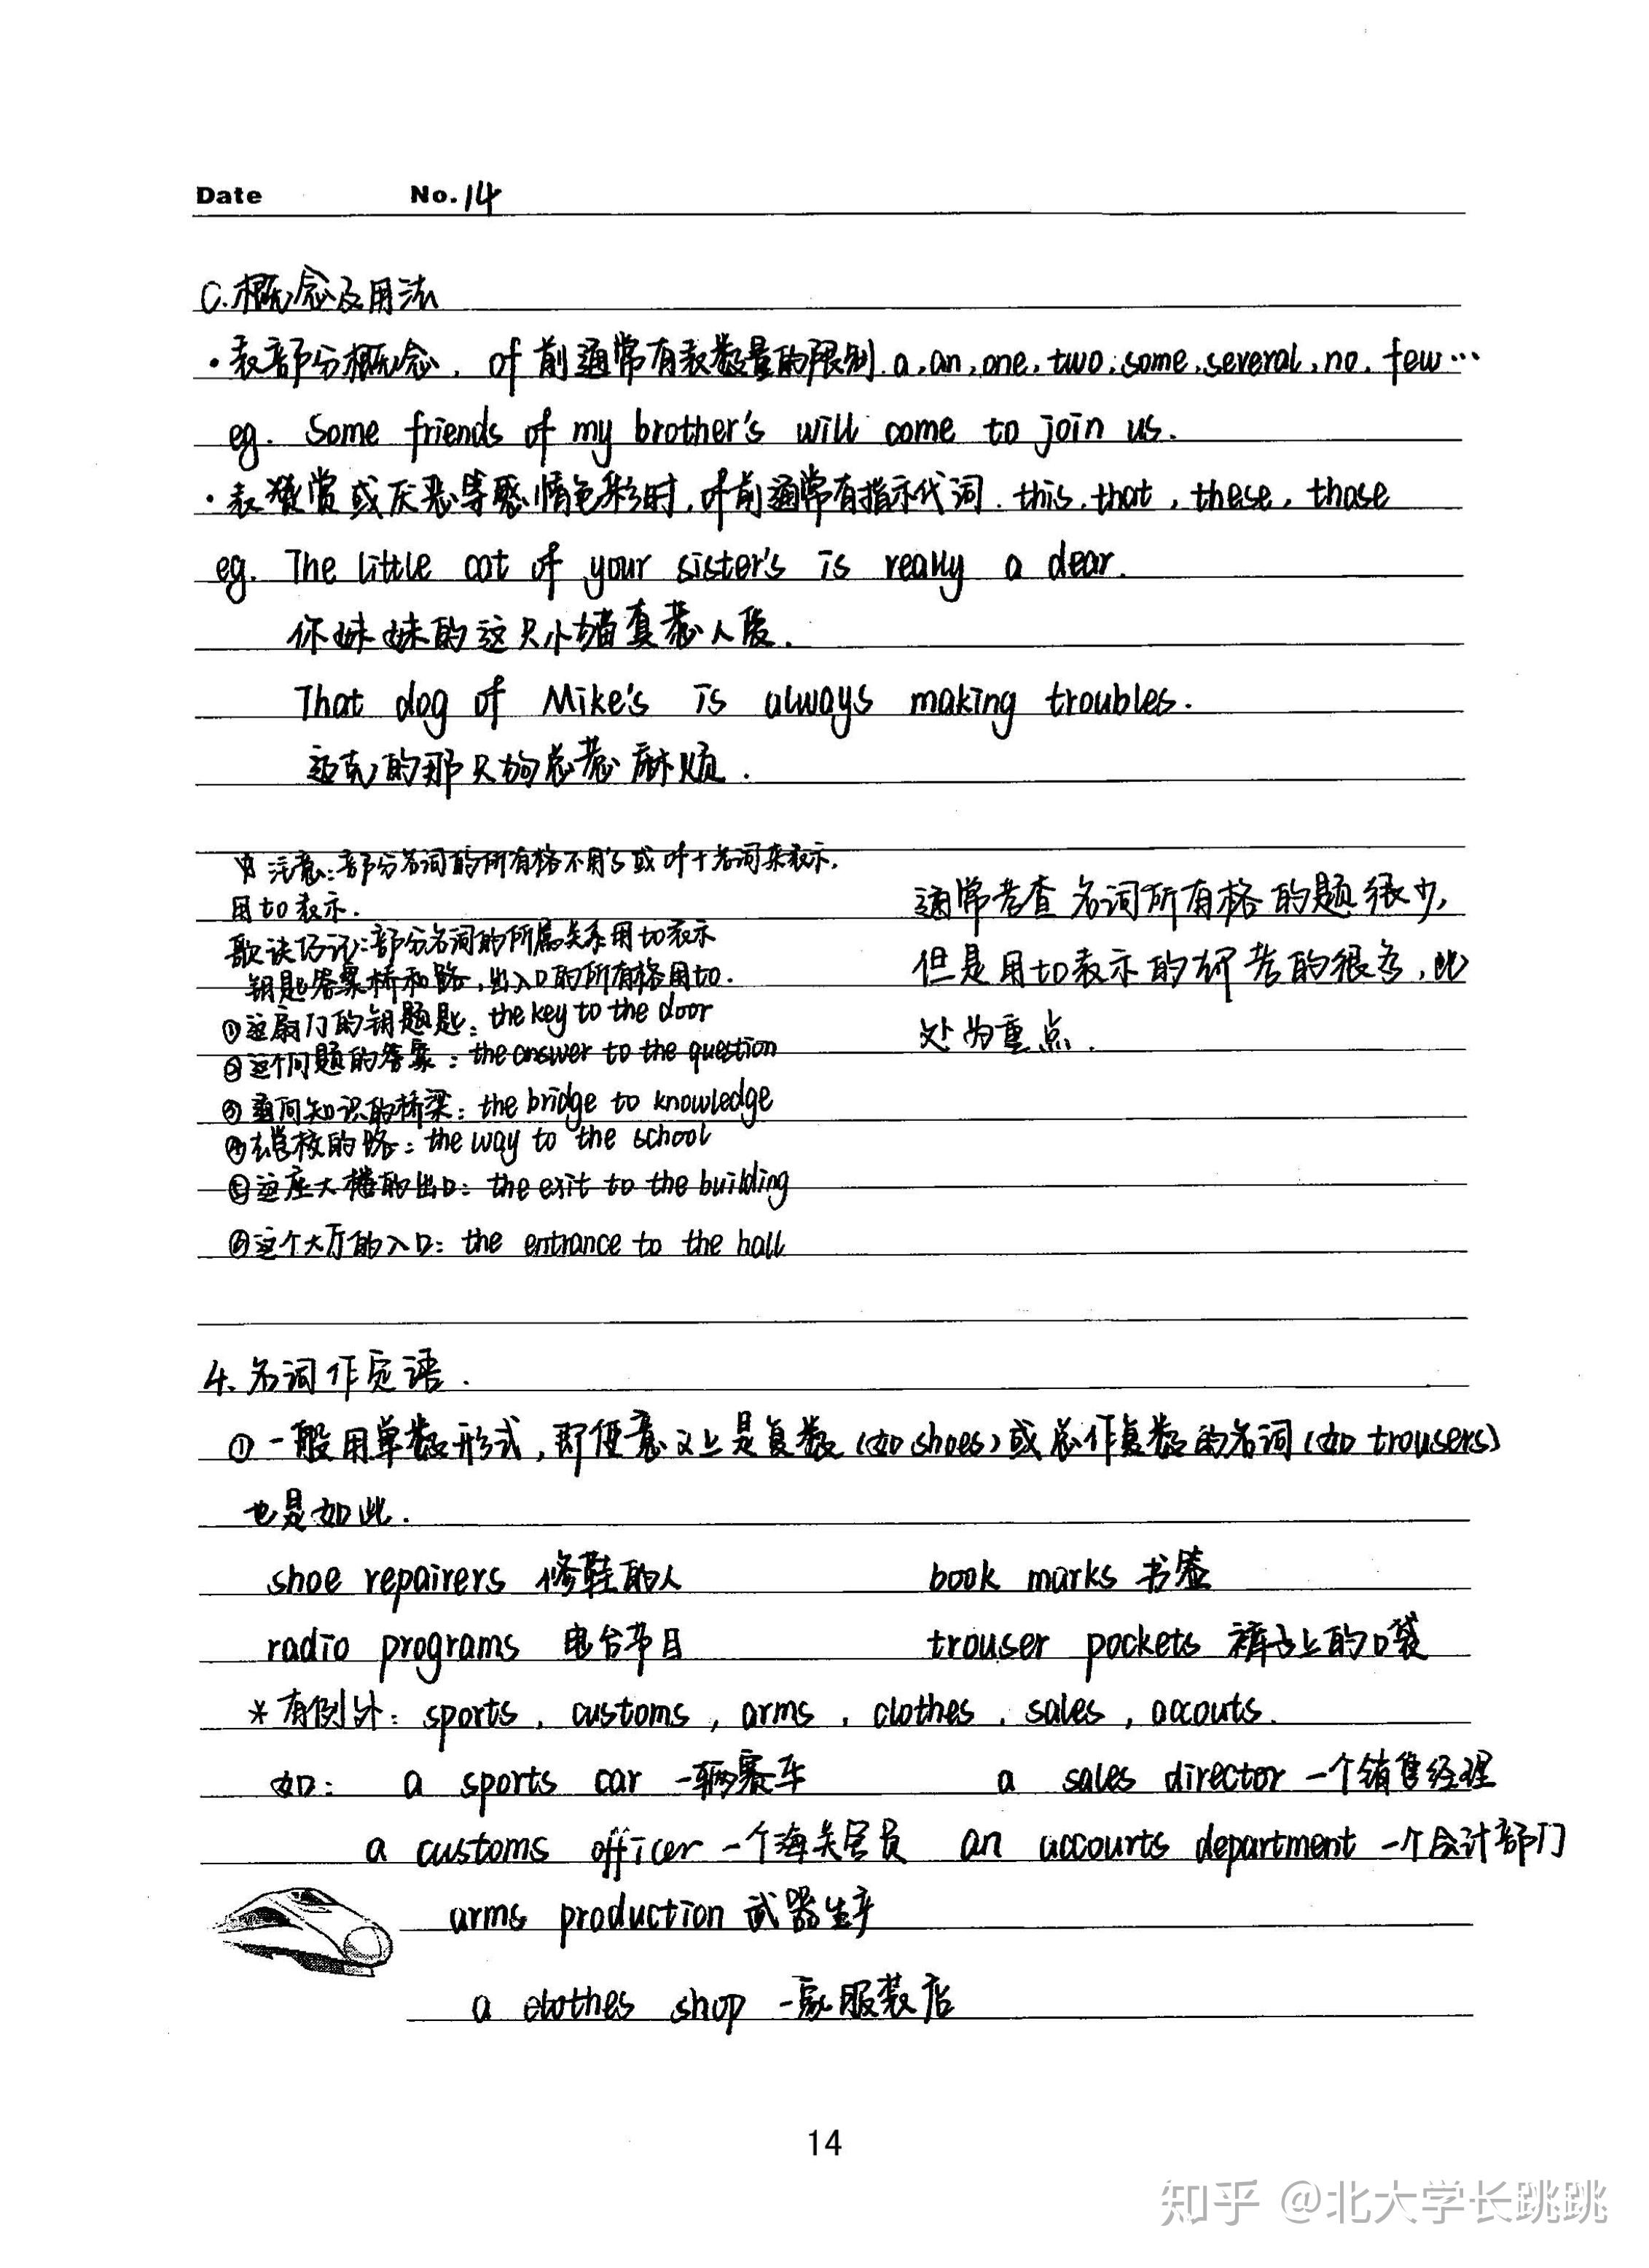 Date No.14
C.概念及用法
·表部分概念, of 前通常有表数量的限制.a,an,one,two,some,several,no,few…
eg. Some friends of my brother's will come to join us.
·表赞赏或厌恶等感情色彩时,of前通常有指示代词.this,that,these,those
eg. The little cat of your sister's is really a dear.
你妹妹的这只小猫真惹人爱.
That dog of Mike's is always making troubles.
迈克的那只狗总惹麻烦.
注意:部分名词的所有格不用's或of+名词来表示,
用to表示.
歌诀巧记:部分名词的所属关系用to表示
钥匙答案桥和路,出入口的所有格用to.
①这扇门的钥题匙: the key to the door
②这个问题的答案: the answer to the question
③通向知识的桥梁: the bridge to knowledge
④去学校的路: the way to the school
⑤这座大楼的出口: the exit to the building
⑥这个大厅的入口: the entrance to the hall
通常考查名词所有格的题很少,
但是用to表示的却考的很多,此
处为重点.
4.名词作定语.
①一般用单数形式,即便意义上是复数(如shoes)或总作复数的名词(如trousers)
也是如此.
shoe repairers 修鞋的人 book marks 书签
radio programs 电台节目 trouser pockets 裤子上的口袋
*有例外: sports, customs, arms, clothes, sales, accouts.
如: a sports car 一辆赛车 a sales director 一个销售经理
a customs officer 一个海关官员 an accourts department 一个会计部门
arms production 武器生产
a clothes shop 一家服装店
14
知乎 @北大学长跳跳